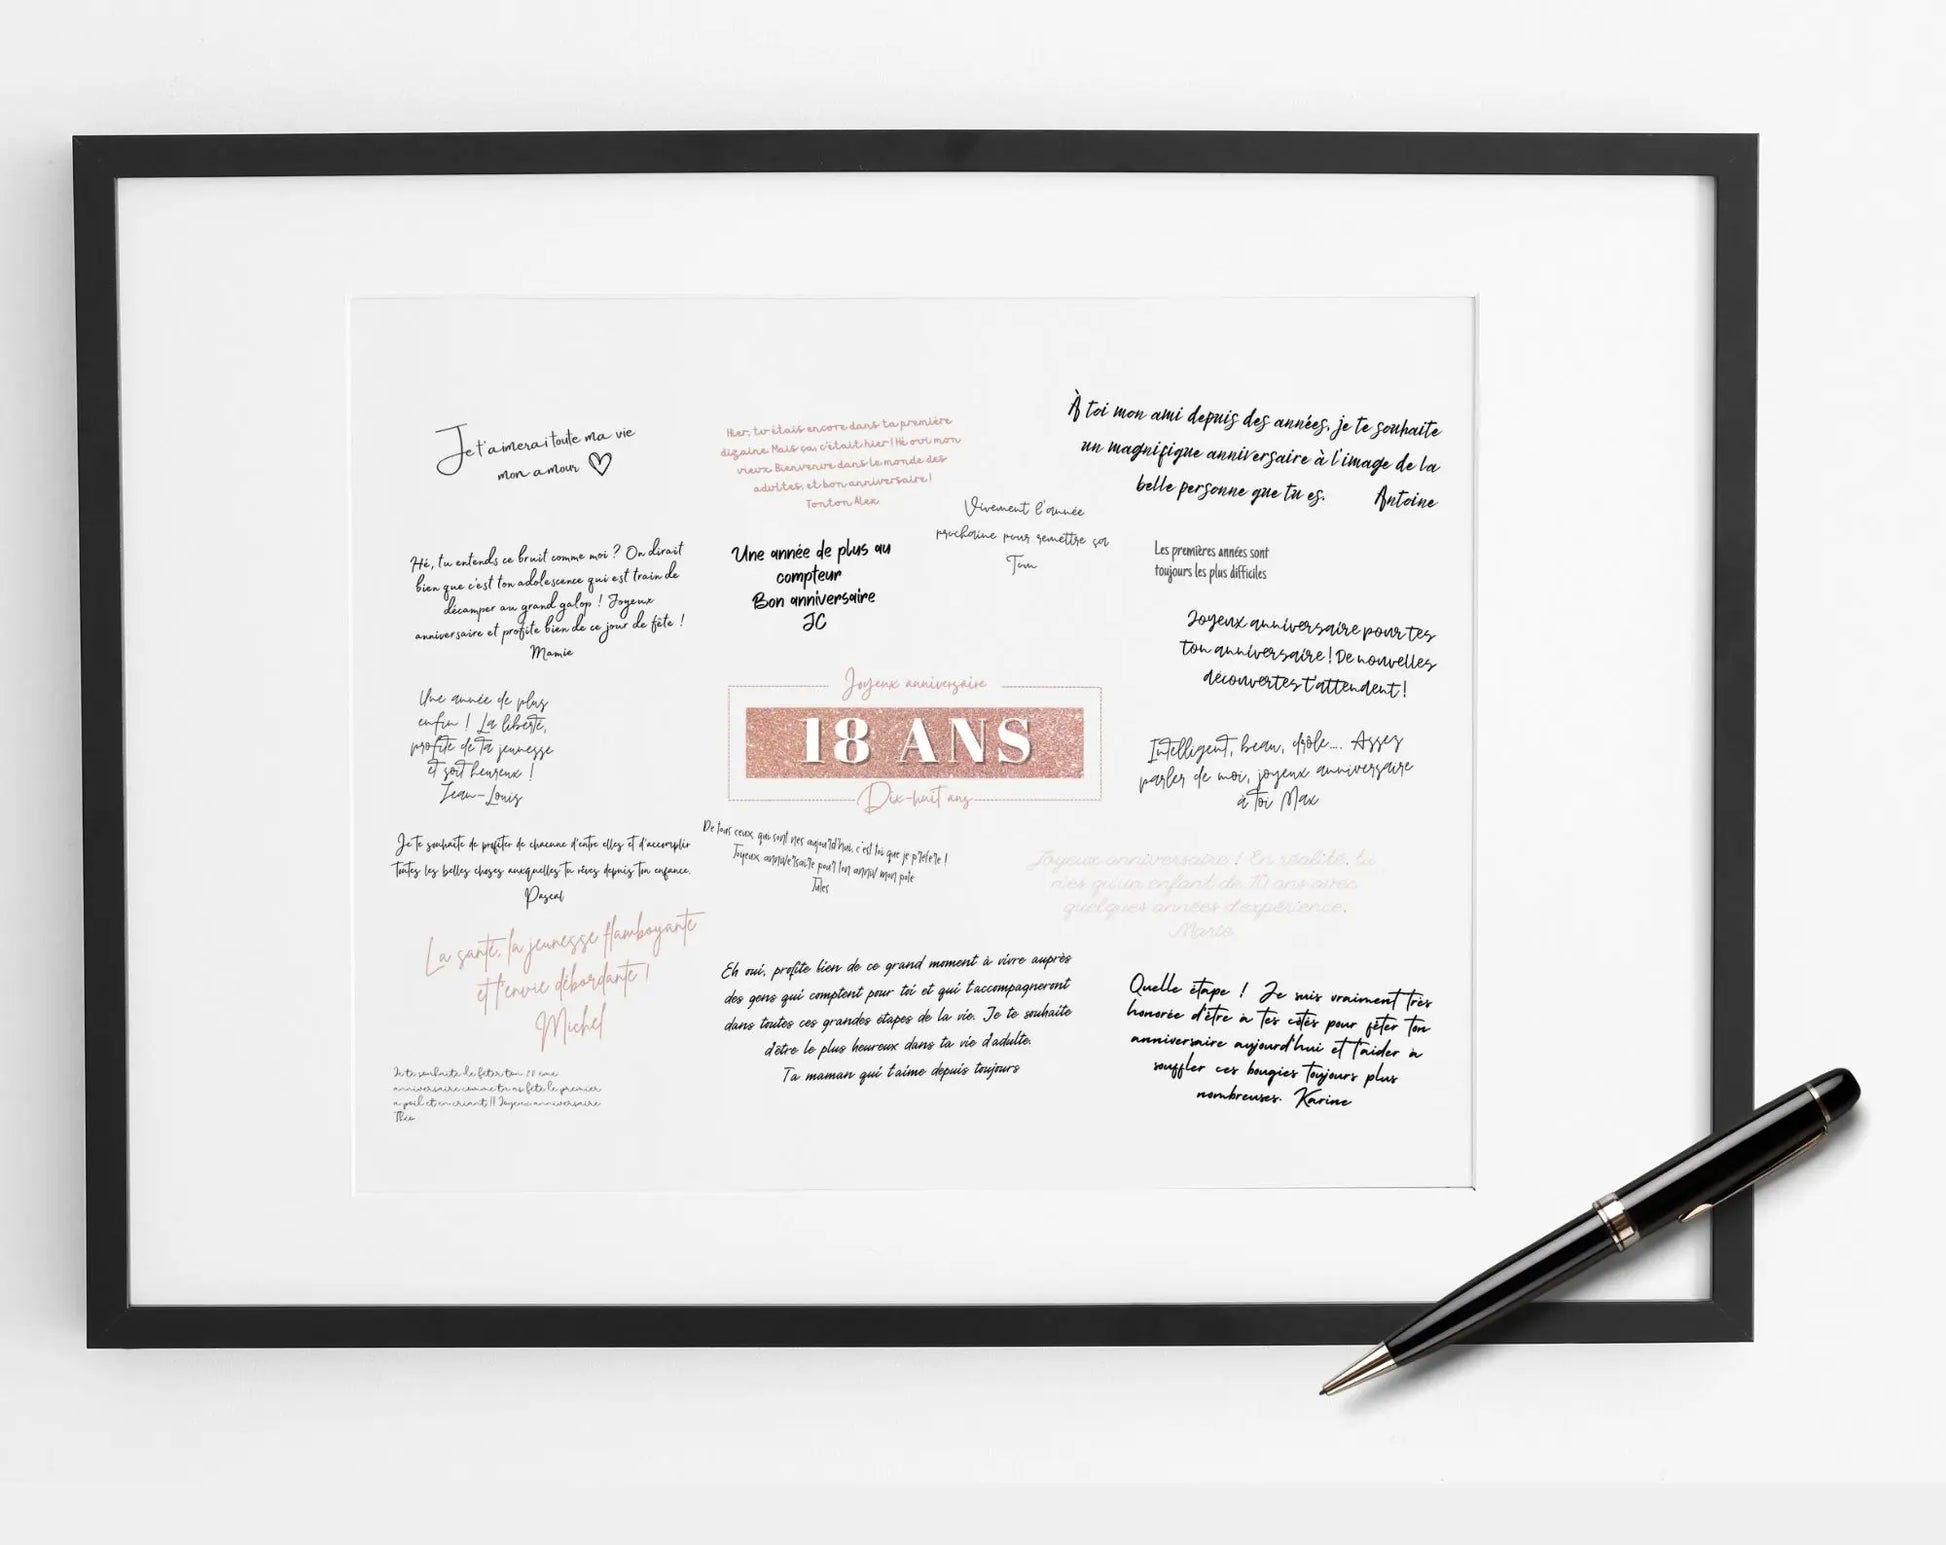 Je t'aimerai toute ma vie
mon amour
Hier, tu étais encore dans ta première
dizaine. Mais ça, c'était hier ! Hé oui mon
vieux. Bienvenue dans le monde des
adultes, et bon anniversaire !
Tonton Alex
À toi mon ami depuis des années, je te souhaite
un magnifique anniversaire à l'image de la
belle personne que tu es. Antoine
Vivement l'année
prochaine pour remettre ça
Tom
Hé, tu entends ce bruit comme moi ? On dirait
bien que c'est ton adolescence qui est train de
décamper au grand galop ! Joyeux
anniversaire et profite bien de ce jour de fête !
Mamie
Une année de plus au
compteur
Bon anniversaire
JC
Les premières années sont
toujours les plus difficiles
Joyeux anniversaire pour tes
ton anniversaire ! De nouvelles
découvertes t'attendent !
Une année de plus
enfin ! La liberté,
profite de ta jeunesse
et soit heureux !
Jean-Louis
Joyeux anniversaire
18 ANS
Dix-huit ans
Intelligent, beau, drôle.... Assez
parler de moi, joyeux anniversaire
à toi Max
Je te souhaite de profiter de chacune d'entre elles et d'accomplir
toutes les belles choses auxquelles tu rêves depuis ton enfance.
Pascal
De tous ceux qui sont nés aujourd'hui, c'est toi que je préfère !
Joyeux anniversaire pour ton anniv mon pote
Jules
Joyeux anniversaire ! En réalité, tu
n'es qu'un enfant de 10 ans avec
quelques années d'expérience.
Marie
La santé, la jeunesse flamboyante
et l'envie débordante !
Michel
Eh oui, profite bien de ce grand moment à vivre auprès
des gens qui comptent pour toi et qui t'accompagneront
dans toutes ces grandes étapes de la vie. Je te souhaite
d'être le plus heureux dans ta vie d'adulte.
Ta maman qui t'aime depuis toujours
Quelle étape ! Je suis vraiment très
honorée d'être à tes côtés pour fêter ton
anniversaire aujourd'hui et t'aider à
souffler ces bougies toujours plus
nombreuses. Karine
Je te souhaite de fêter ton ème
anniversaire comme tu as fêté le premier
à poil et en criant !! Joyeux anniversaire
Théo